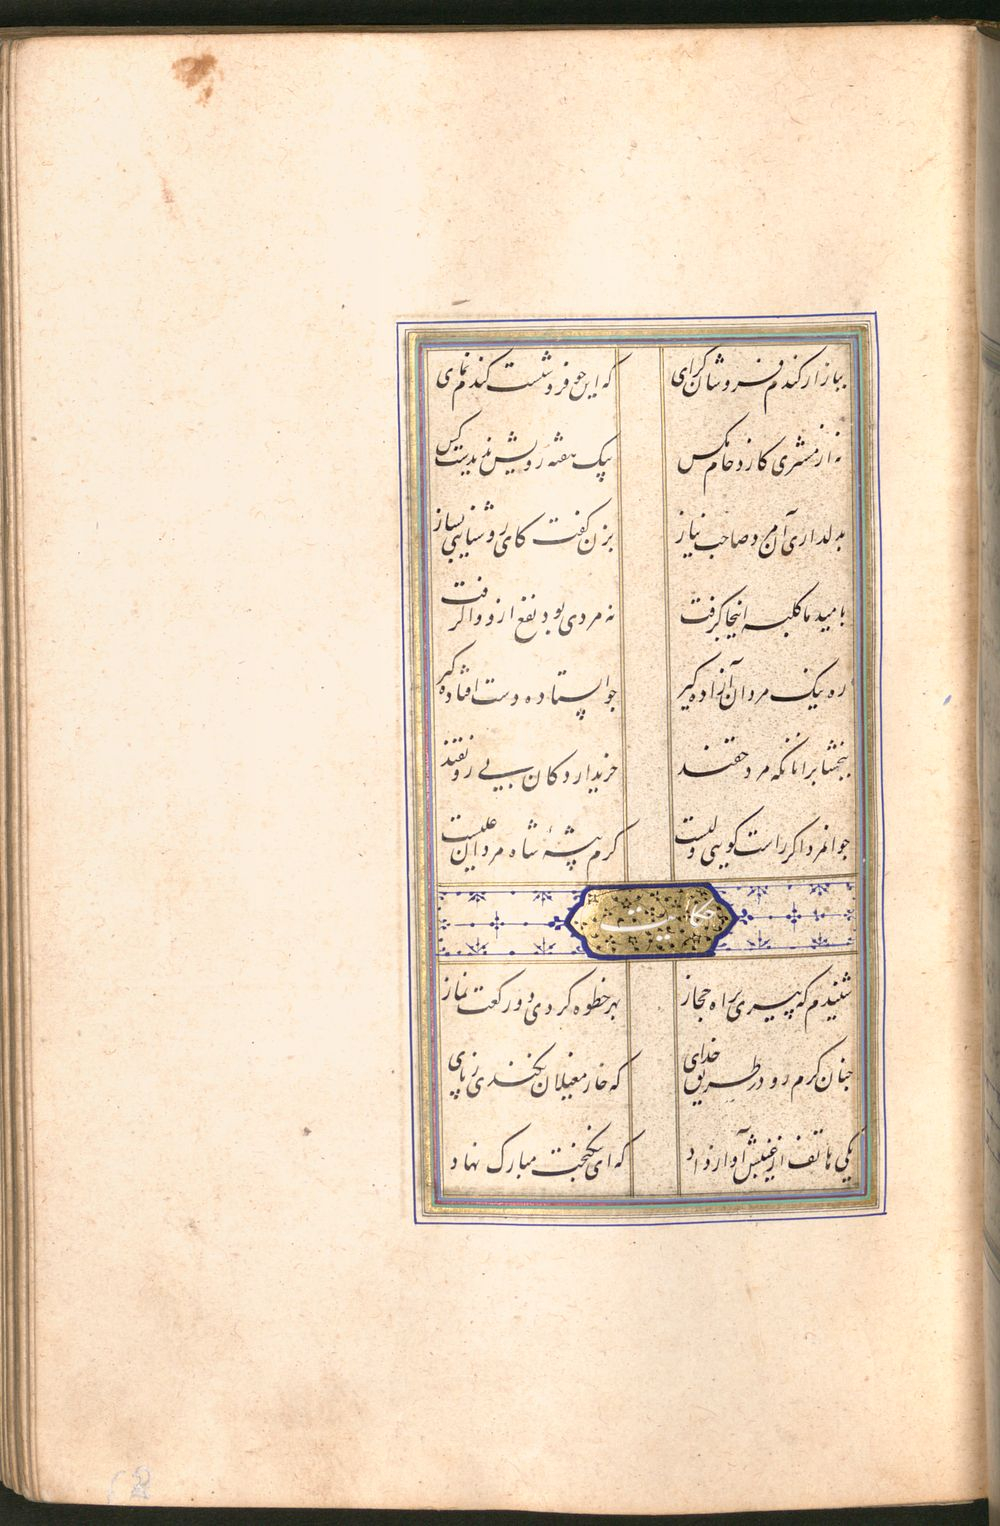 ببازار کندم فروشان کرای که این جو فروشست کندم نمای
نه از مشتری کازدحام مکس بیک هفته رویش ندیدست کس
بدلداری آن مرد صاحب نیاز بزن کفت کای روشنایی بساز
بامید ما کلبه اینجا کرفت نه مردی بود نفع ازو وا کرفت
ره نیک مردان آزاده کیر جو استاده دست افتاده کیر
ببخشا برانانکه مرد حقند خریدار دکان بی رونقند
جوانمرد اکر راست کویی ولیست کرم پیشهٔ شاه مردان علیست
حکایت
شنیدم که پیری براه حجاز بهر خطوه کردی دو رکعت نماز
جنان کرم رو در طریق خدای که خار مغیلان نکندی ز پای
یکی هاتف از غیبش آواز داد که ای نیکبخت مبارک نهاد